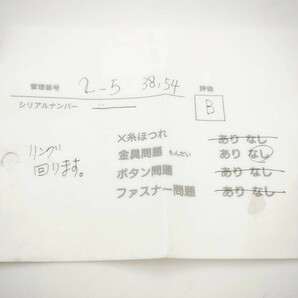 管理番号 2-5 38,54 評価
シリアルナンバー — B
リング
回ります。
×糸ほつれ あり なし
金具問題 もんだい あり なし
ボタン問題 あり なし
ファスナー問題 あり なし